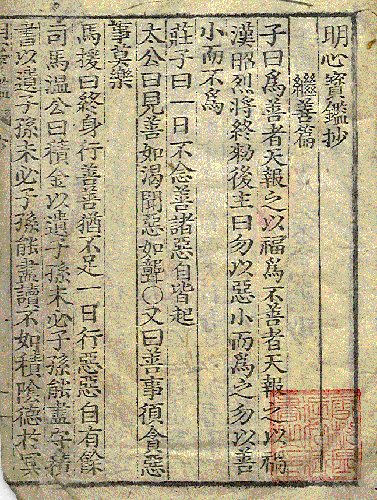 明心寶鑑抄
繼善篇
子曰爲善者天報之以福爲不善者天報之以禍
漢昭烈將終勑後主曰勿以惡小而爲之勿以善
小而不爲
莊子曰一日不念善諸惡自皆起
太公曰見善如渴聞惡如聾○又曰善事須貪惡
事莫樂
馬援曰終身行善善猶不足一日行惡惡自有餘
司馬溫公曰積金以遺子孫未必子孫能盡守積
書以遺子孫未必子孫能盡讀不如積陰德於冥